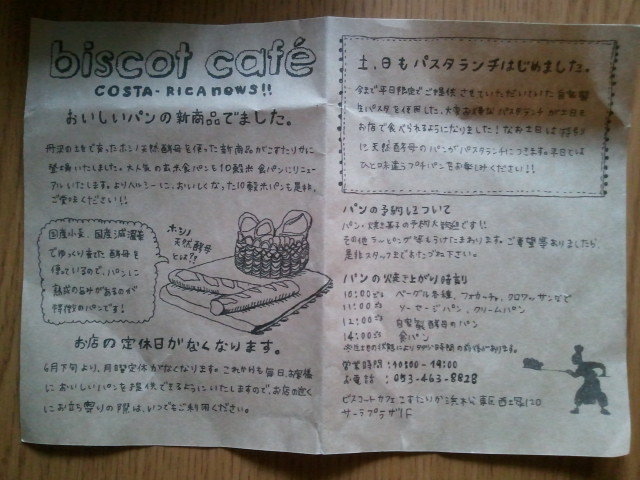 biscot café
COSTA-RICA news!!
おいしいパンの新商品でました。
丹沢の土地で育ったホシノ天然酵母を使った新商品がこすたりかに
登場いたしました。大人気のお米食パンも10穀米食パンにリニュー
アルいたします。よりヘルシーに、おいしくなった10穀米パンも是非、
ご賞味ください!!
国産小麦、国産減農薬米
でゆっくり育てた酵母を
使っているので、パンに
熟成の旨みがあるのが
特徴のパンです!
ホシノ
天然酵母
とは?!
お店の定休日がなくなります。
6月下旬より、月曜定休がなくなります。これからも毎日、お客様
においしいパンを提供できるようにいたしますので、お店の近く
にお立ち寄りの際は、いつでもご利用ください。
土、日もパスタランチはじめました。
今まで平日限定でご提供させていただいていた自家製
生パスタを使用した、大変お得なパスタランチが土日も
お店で食べられるようになりました!なお土日は特別
に天然酵母のパンがパスタランチにつきます。平日とは
ひと味違うプチパンをお楽しみください!!
パンの予約について
パン・焼き菓子の予約大歓迎です!!
その他ラッピング等もうけたまわります。ご要望等ありましたら、
是非スタッフまでおたずね下さい。
パンの焼き上がり時刻
10:00 ベーグル各種、フォカッチャ、クロワッサンなど
11:00 ソーセージパン、クリームパン
12:00 自家製酵母のパン
14:00 食パン
※生地の状態により多少時間の前後があります。
営業時間:10:00-19:00
お電話:053-463-8828
ビスコートカフェ こすたりか 浜松市東区西塚町120
サーラプラザ1F